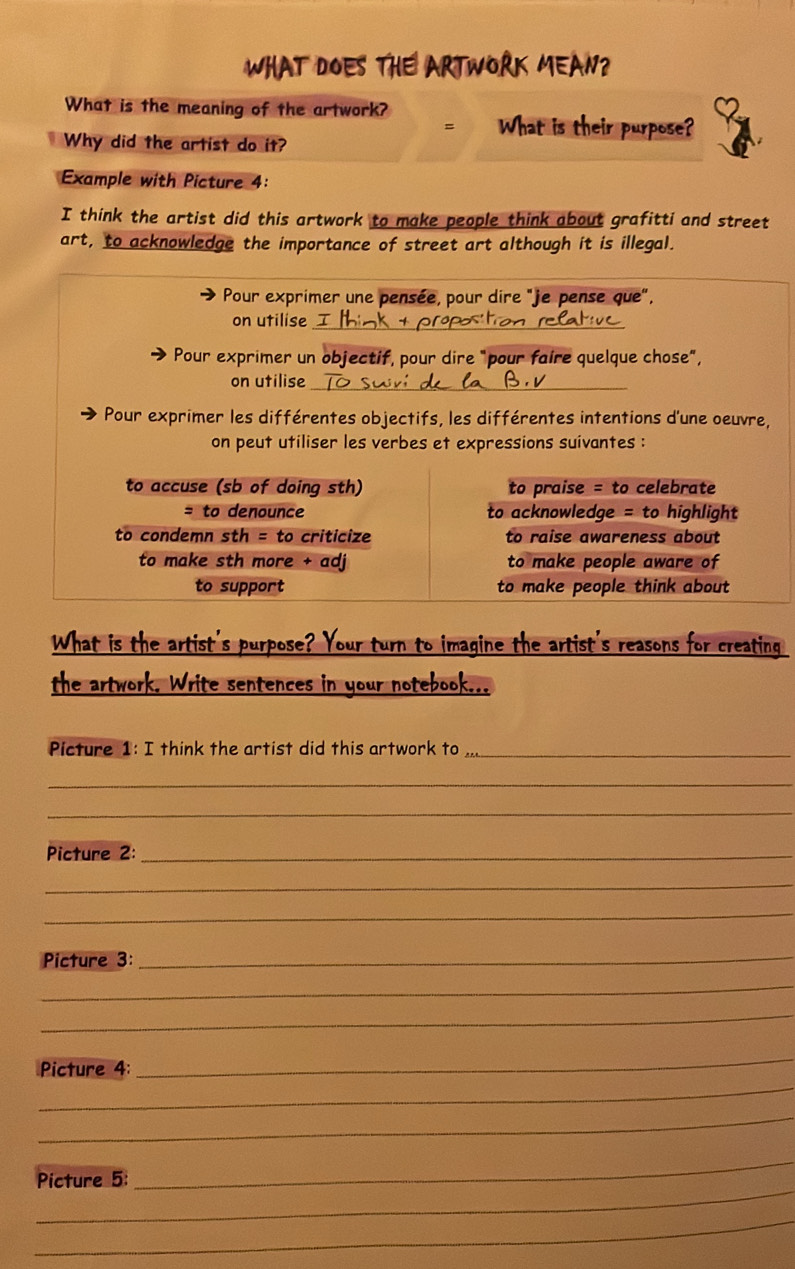 WHAT DOES THE ARTWORK MEAN?
What is the meaning of the artwork?
Why did the artist do it?
= What is their purpose?
Example with Picture 4:
I think the artist did this artwork to make people think about grafitti and street
art, to acknowledge the importance of street art although it is illegal.
→ Pour exprimer une pensée, pour dire "je pense que",
on utilise I think + proposition relative
→ Pour exprimer un objectif, pour dire "pour faire quelque chose",
on utilise TO suivi de la B.V
→ Pour exprimer les différentes objectifs, les différentes intentions d'une oeuvre,
on peut utiliser les verbes et expressions suivantes :
to accuse (sb of doing sth)
= to denounce
to condemn sth = to criticize
to make sth more + adj
to support
to praise = to celebrate
to acknowledge = to highlight
to raise awareness about
to make people aware of
to make people think about
What is the artist's purpose? Your turn to imagine the artist's reasons for creating
the artwork. Write sentences in your notebook...
Picture 1: I think the artist did this artwork to ...
Picture 2:
Picture 3:
Picture 4:
Picture 5: